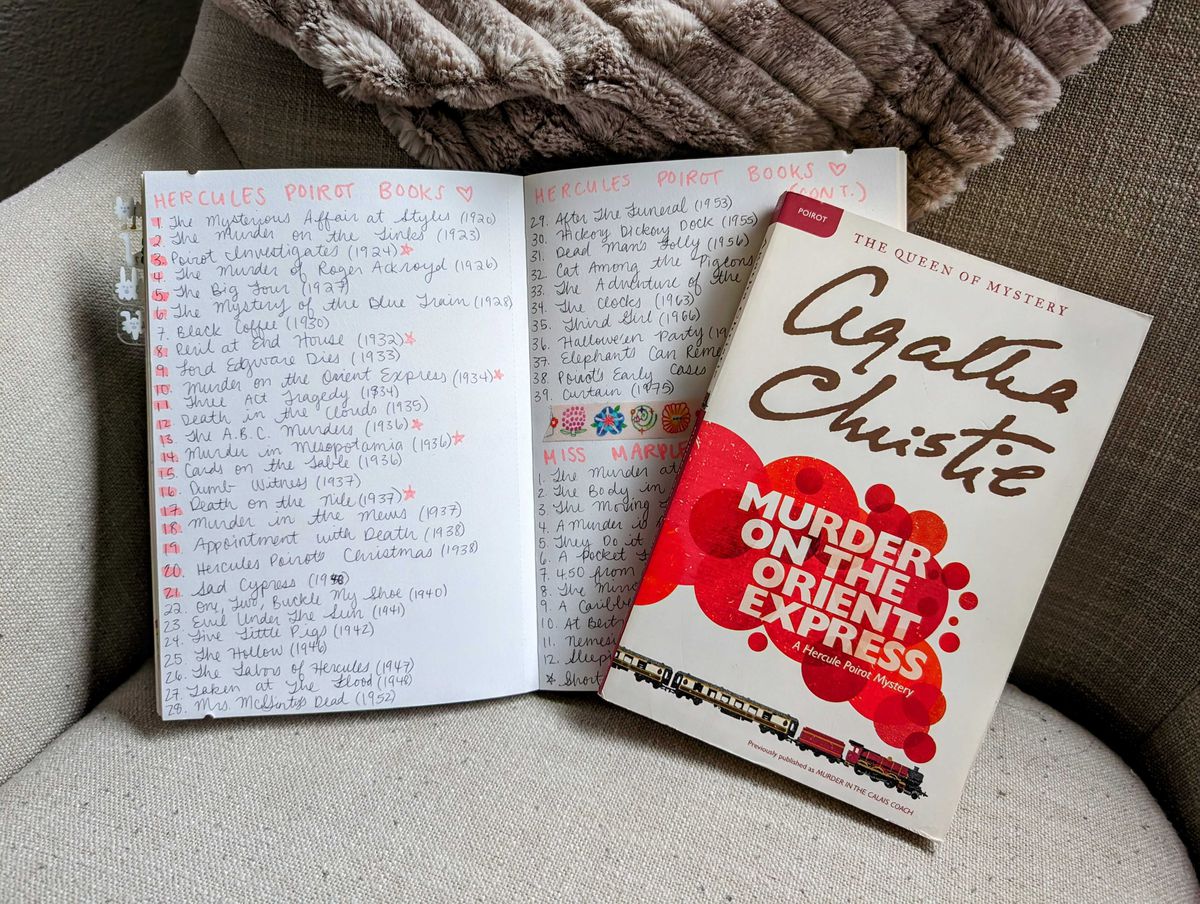 HERCULES POIROT BOOKS ♡
1. The Mysterious Affair at Styles (1920)
2. The Murder on the Links (1923)
3. Poirot Investigates (1924) ☆
4. The Murder of Roger Ackroyd (1926
5. The Big Four (1927)
6. The Mystery of the Blue Train (1928)
7. Black Coffee (1930)
8. Peril at End House (1932) ☆
9. Lord Edgware Dies (1933)
10. Murder on the Orient Express (1934) ☆
11. Three Act Tragedy (1934)
12. Death in the Clouds (1935)
13. The A.B.C. Murders (1936) ☆
14. Murder in Mesopotamia (1936) ☆
15. Cards on the Table (1936)
16. Dumb Witness (1937)
17. Death on the Nile (1937) ☆
18. Murder in the Mews (1937)
19. Appointment with Death (1938)
20. Hercules Poirot's Christmas (1938)
21. Sad Cypress (1940)
22. One, Two, Buckle My Shoe (1940)
23. Evil Under The Sun (1941)
24. Five Little Pigs (1942)
25. The Hollow (1946)
26. The Labors of Hercules (1947)
27. Taken at The Flood (1948)
28. Mrs. McGinty's Dead (1952)
HERCULES POIROT BOOKS ♡
(CONT.)
29. After The Funeral (1953)
30. Hickory Dickory Dock (1955)
31. Dead Man's Folly (1956)
32. Cat Among the Pigeons
33. The Adventure of the
34. The Clocks (1963)
35. Third Girl (1966)
36. Hallowe'en Party (19
37. Elephants Can Reme
38. Poirot's Early Cases
39. Curtain (1975)
MISS MARPLE
1. The Murder at
2. The Body in
3. The Moving
4. A Murder is
5. They Do it
6. A Pocket
7. 4:50 from
8. The Mirr
9. A Caribbe
10. At Bert
11. Nemes
12. Sleep
☆ Short
POIROT
THE QUEEN OF MYSTERY
Agatha
Christie
MURDER
ON THE
ORIENT
EXPRESS
A Hercule Poirot Mystery
Previously published as MURDER IN THE CALAIS COACH